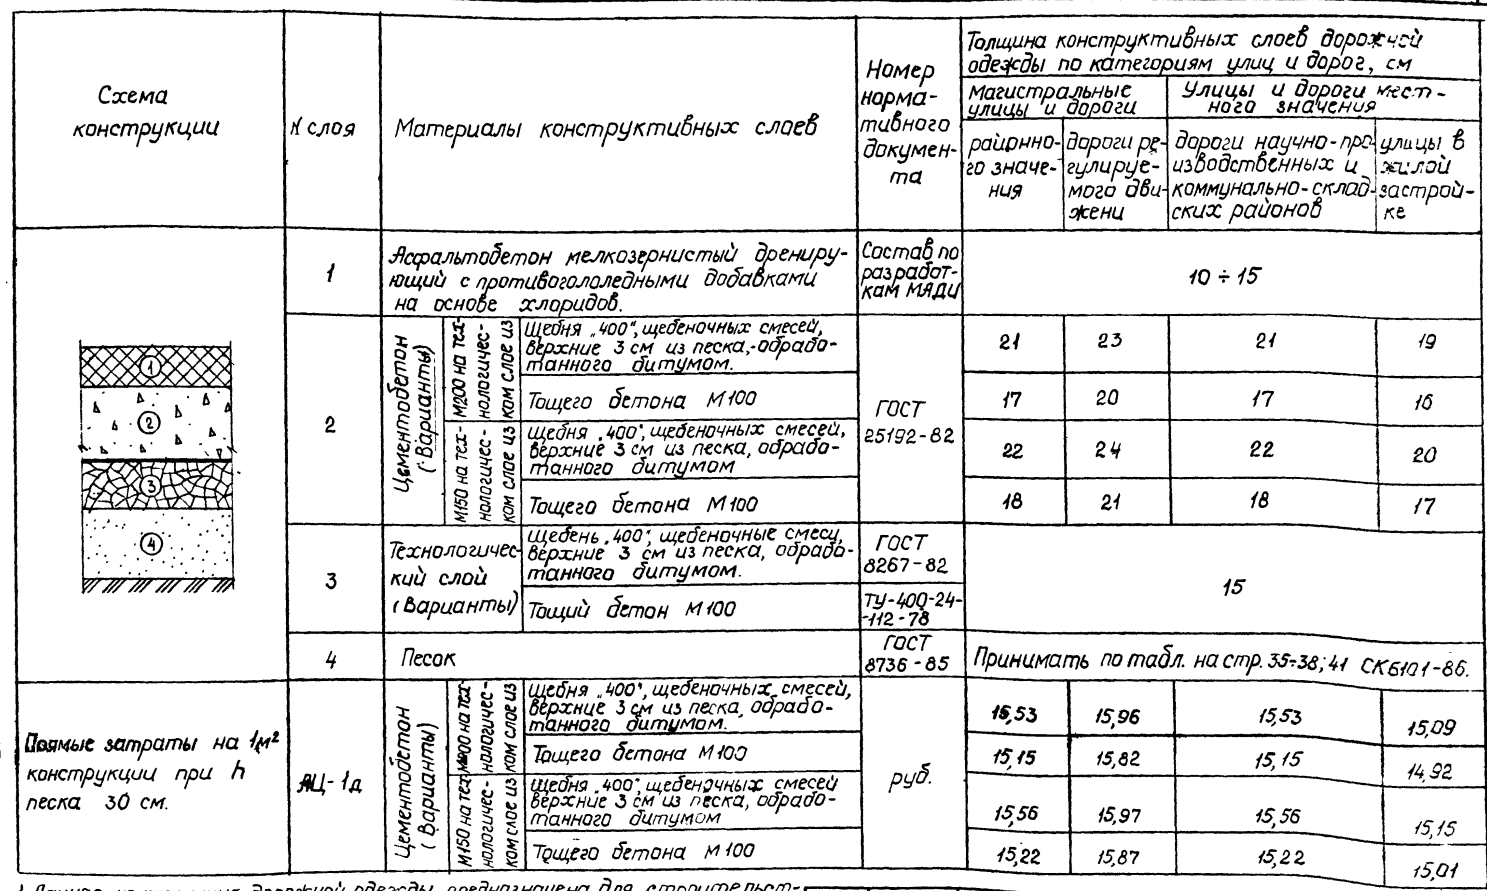 Схема
конструкции
N слоя
Материалы конструктивных слоев
Номер
норма-
тивного
докумен-
та
Толщина конструктивных слоев дорожной
одежды по категориям улиц и дорог, см
Магистральные
улицы и дороги
Улицы и дороги мест-
ного значения
районно-
го значе-
ния
дороги ре-
гулируе-
мого дви-
жени
дороги научно-про-
изводственных и
коммунально-склад-
ских районов
улицы в
жилой
застрой-
ке
1
2
3
4
1
Асфальтобетон мелкозернистый дрениру-
ющий с противогололедными добавками
на основе хлоридов.
Состав по
разработ-
кам МАДИ
10 ÷ 15
2
Цементобетон
(Варианты)
М200 на тех-
нологичес-
ком слое из
Щебня „400", щебеночных смесей,
верхние 3 см из песка, обрабо-
танного битумом.
21 23 21 19
Тощего бетона М100
17 20 17 16
ГОСТ
25192-82
М150 на тех-
нологичес-
ком слое из
Щебня „400", щебеночных смесей,
верхние 3 см из песка, обрабо-
танного битумом
22 24 22 20
Тощего бетона М100
18 21 18 17
3
Технологичес-
кий слой
(Варианты)
Щебень „400", щебеночные смеси,
верхние 3 см из песка, обрабо-
танного битумом.
ГОСТ
8267-82
15
Тощий бетон М100
ТУ-400-24-
-112-78
4
Песок
ГОСТ
8736-85
Принимать по табл. на стр. 35÷38; 41 СК6101-86.
Прямые затраты на 1м²
конструкции при h
песка 30 см.
АЦ-1д
Цементобетон
(Варианты)
М200 на тех-
нологичес-
ком слое из
Щебня „400", щебеночных смесей,
верхние 3 см из песка, обрабо-
танного битумом.
15,53 15,96 15,53 15,09
Тощего бетона М100
15,15 15,82 15,15 14,92
руб.
М150 на тех-
нологичес-
ком слое из
Щебня „400", щебеночных смесей
верхние 3 см из песка, обрабо-
танного битумом
15,56 15,97 15,56 15,15
Тощего бетона М100
15,22 15,87 15,22 15,01
дорожной одежды предназначена для строительст-